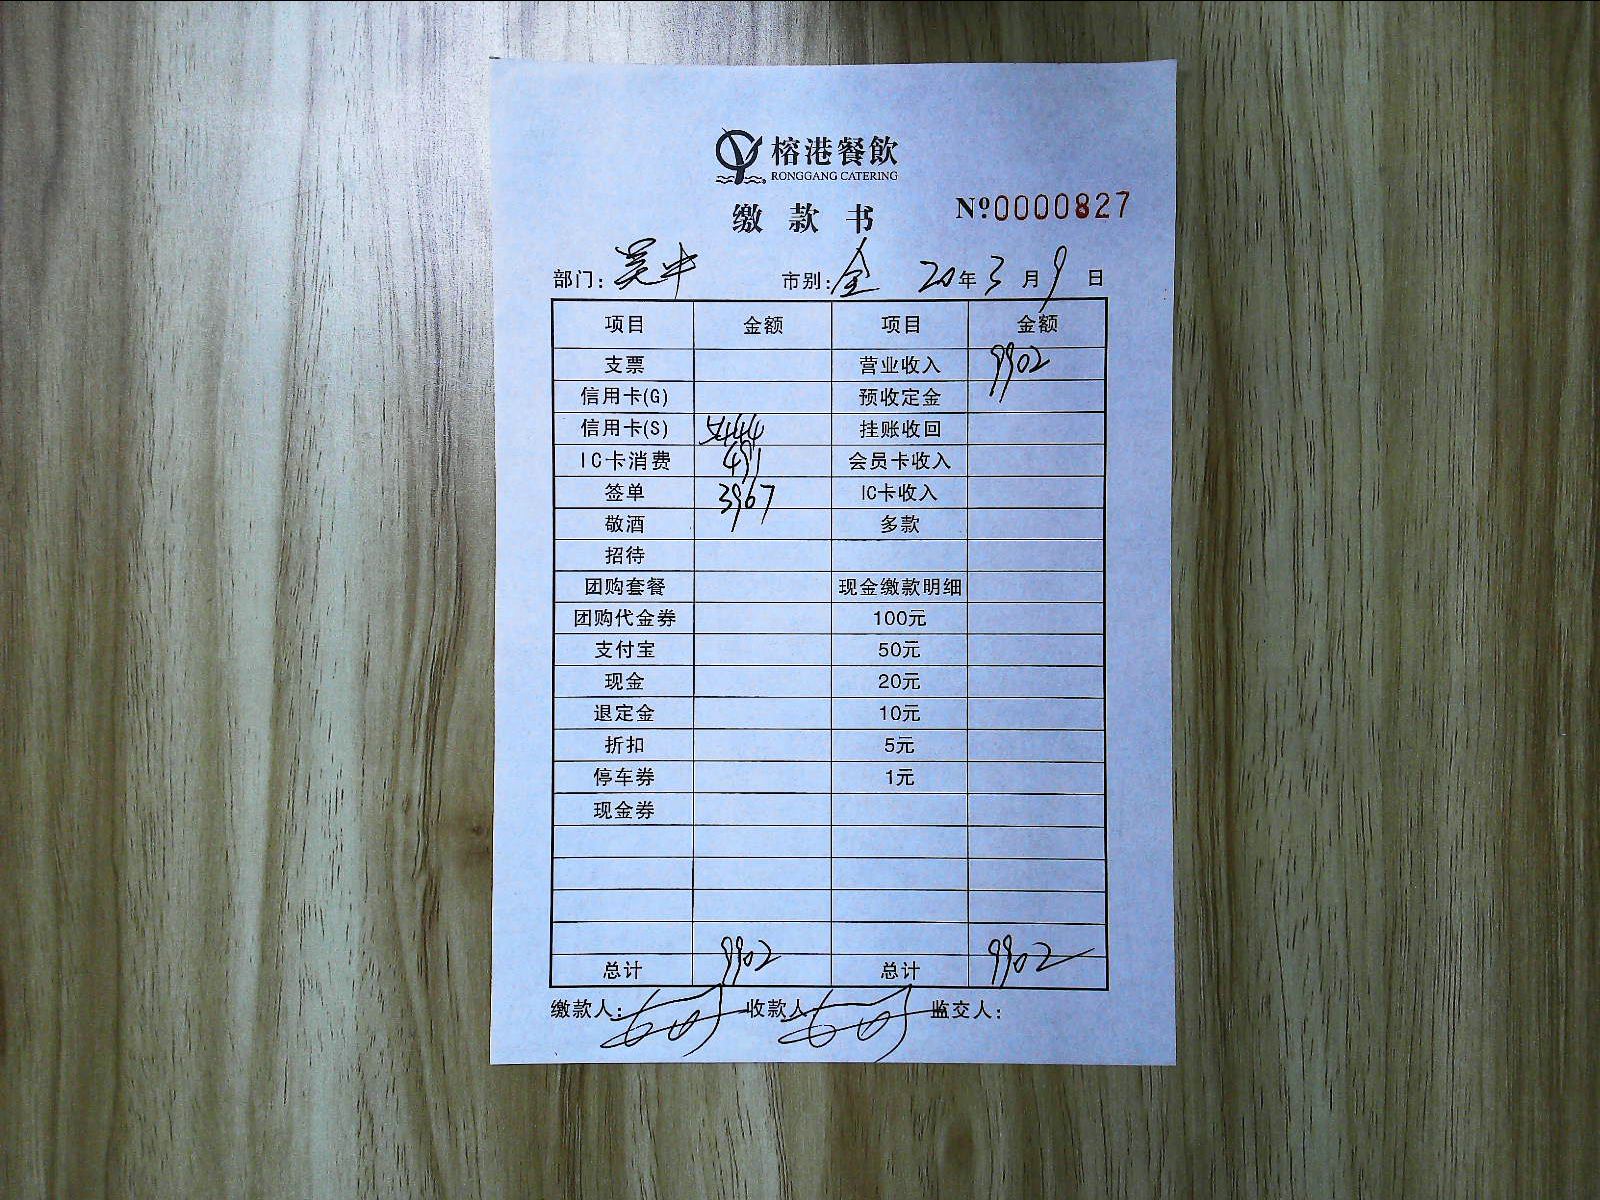 榕港餐飲
RONGGANG CATERING
缴款书 №0000827
部门: 吴中 市别: 全 20年3月9日
项目 金额 项目 金额
支票 营业收入 9902
信用卡(G) 预收定金
信用卡(S) 5444 挂账收回
IC卡消费 491 会员卡收入
签单 3967 IC卡收入
敬酒 多款
招待
团购套餐 现金缴款明细
团购代金券 100元
支付宝 50元
现金 20元
退定金 10元
折扣 5元
停车券 1元
现金券
总计 9902 总计 9902
缴款人: 收款人 监交人: